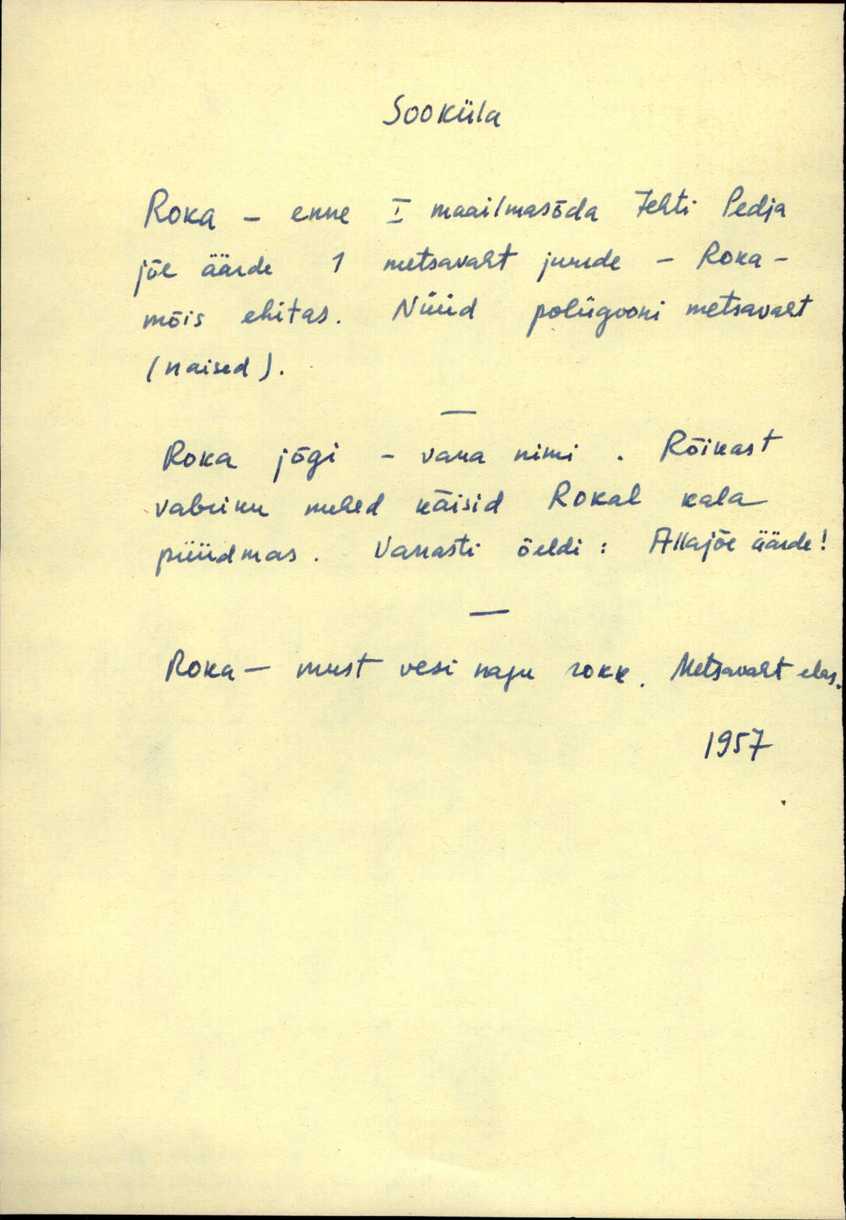 Sooküla
Roka – enne I maailmasõda tehti Pedja
jõe äärde 1 metsavaht juurde – Roka –
mõis ehitas. Nüüd polügooni metsavaht
(naised).
—
Roka jõgi – vana nimi. Rõikast
vabriku mehed käisid Rokal kala
püüdmas. Vanasti öeldi: Allajõe äärde!
—
Roka – must vesi nagu rokk. Metsavaht elas.
1957